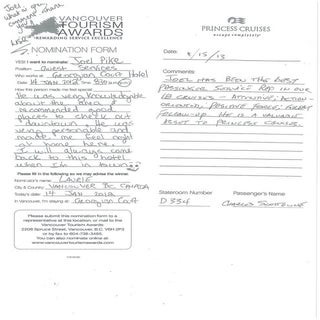 Joel
VANCOUVER
TOURISM
AWARDS
REWARDING SERVICE EXCELLENCE
NOMINATION FORM
YES! I want to nominate: Joel Pike
Position: Guest Services
Who works at: Georgian Court Hotel
Date: 14 JAN 2012
How the person made me feel special:
He was very knowledgable
about the area &
recommended good
places to check out
downtown. He was
very personable and
made me feel right
at home here.
I will always come
back to this hotel
when I'm in town.
Please fill in the following so we may advise the winner.
Nominator's name: Laurie
City & Country: VANCOUVER BC CANADA
Today's date: 14 JAN 2012
In Vancouver, I'm staying at: Georgian Court
Please submit this nomination form to a
representative at this location, or mail to the
Vancouver Tourism Awards
2208 Spruce Street, Vancouver, B.C. V6H 2P3
or by fax to 604-738-3465.
You can also nominate online at
www.vancouvertourismawards.com
PRINCESS CRUISES
escape completely
Date: 8/15/13
Comments:
JOEL HAS BEEN THE BEST
PASSENGER SERVICE REP IN OUR
CRUISES - ATTENTIVE, ACTION-
ORIENTED, POSITIVE
FOLLOW-UP. HE IS A VALUABLE
ASSET TO PRINCESS CRUISE.
Stateroom Number
D 334
Passenger's Name
CHARLES